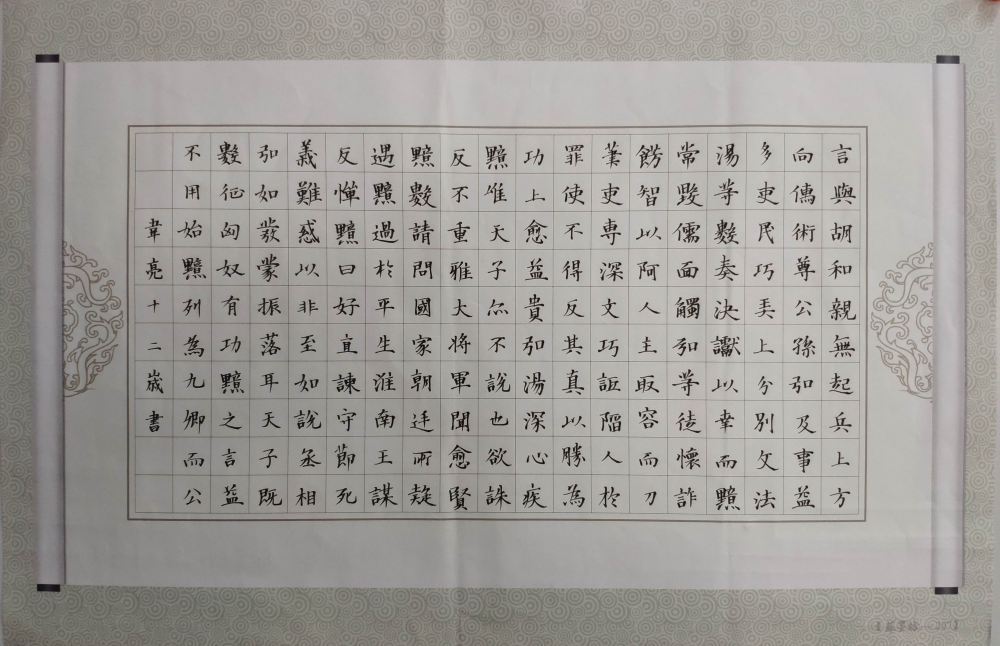 言與胡和親無起兵上方
向儒術尊公孫弘及事益
多吏民巧弄上分別文法
湯等數奏決讞以幸而黯
常毀儒面觸弘等徒懷詐
飾智以阿人主取容而刀
筆吏專深文巧詆陷人於
罪使不得反其真以勝為
功上愈益貴弘湯深心疾
黯唯天子亦不說也欲誅
反不重雅大將軍聞愈賢
黯數請問國家朝廷所疑
遇黯過於平生淮南王謀
反憚黯曰好直諫守節死
義難惑以非至如說丞相
弘如發蒙振落耳天子既
數征匈奴有功黯之言益
不用始黯列為九卿而公
韋亮十二歲書